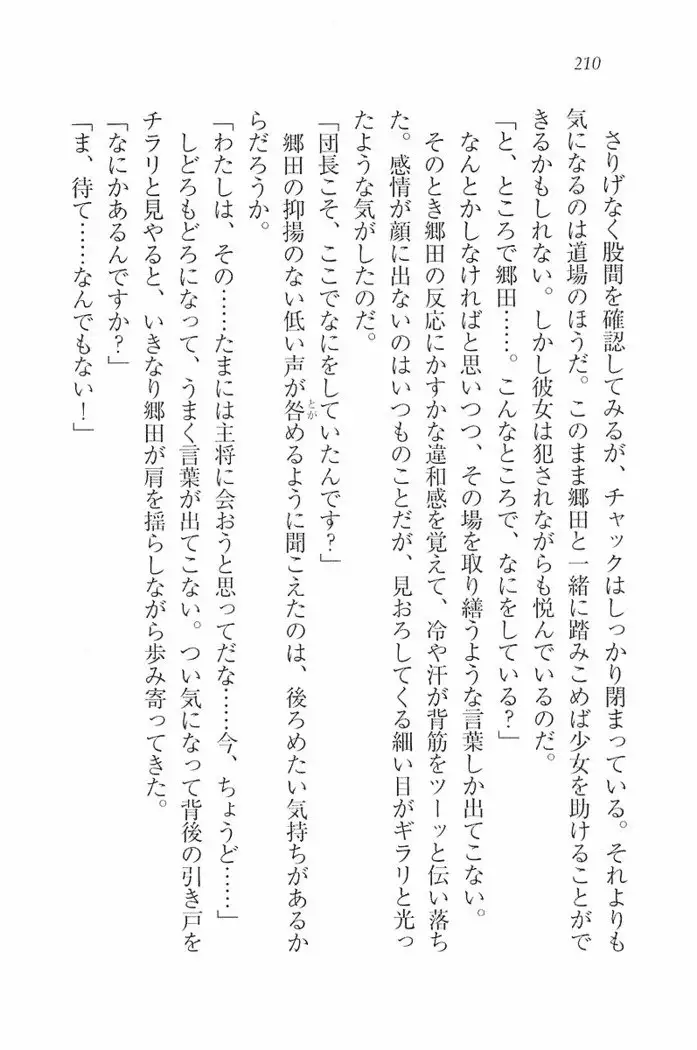 210
さりげなく股間を確認してみるが、チャックはしっかり閉まっている。それよりも
気になるのは道場のほうだ。このまま郷田と一緒に踏みこめば少女を助けることがで
きるかもしれない。しかし彼女は犯されながらも悦んでいるのだ。
「と、ところで郷田……。こんなところで、なにをしている？」
なんとかしなければと思いつつ、その場を取り繕うような言葉しか出てこない。
そのとき郷田の反応にかすかな違和感を覚えて、冷や汗が背筋をツーッと伝い落ち
た。感情が顔に出ないのはいつものことだが、見おろしてくる細い目がギラリと光っ
たような気がしたのだ。
「団長こそ、ここでなにをしていたんです？」
郷田の抑揚のない低い声が咎めるように聞こえたのは、後ろめたい気持ちがあるか
とが
らだろうか。
「わたしは、その……たまには主将に会おうと思ってだな……今、ちょうど……」
しどろもどろになって、うまく言葉が出てこない。つい気になって背後の引き戸を
チラリと見やると、いきなり郷田が肩を揺らしながら歩み寄ってきた。
「なにかあるんですか？」
「ま、待て……なんでもない！」